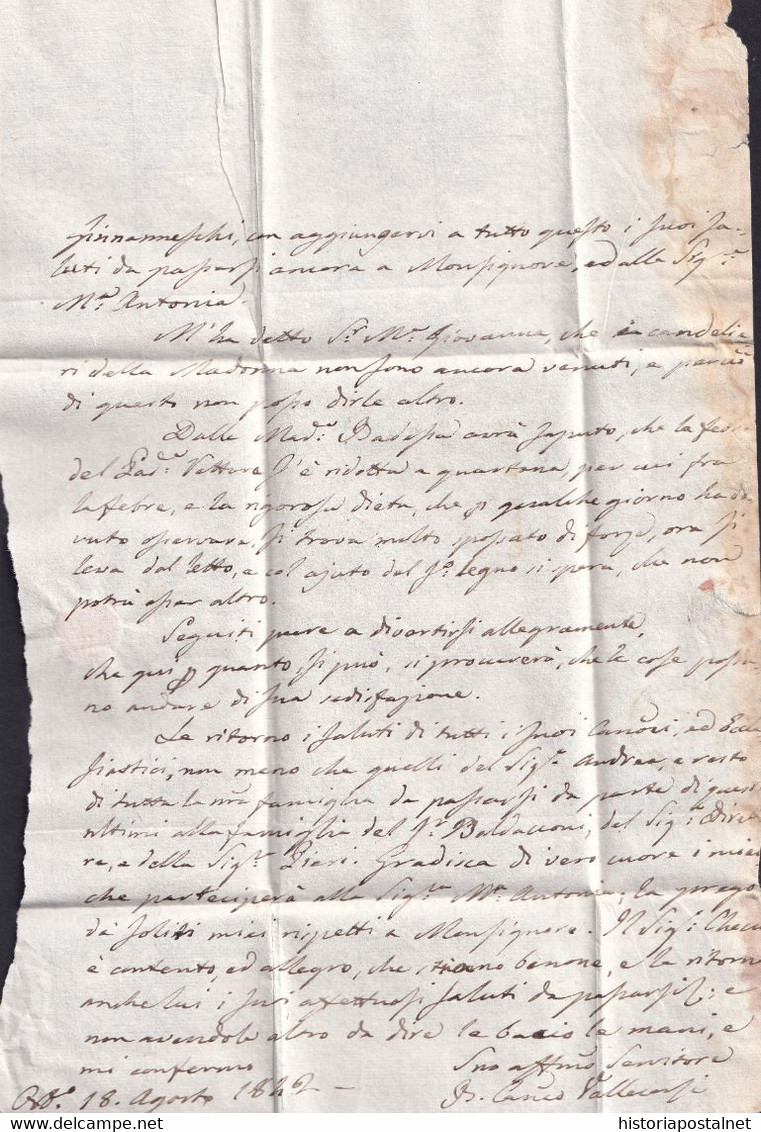 Finnanneschi, con aggiungervi a tutto questo i suoi sa-
luti da passarsi ancora a Monsignore, ed alla Sig.ra
M.a Antonia.
M'ha detto S.r M.a Giovanna, che i candelie
ri della Madonna non sono ancora venuti, e perciò
di questi non posso dirle altro.
Dalla Mad.e Badessa avrà saputo, che la febre
del Pad.e Vettura s'è ridotta a quartana, per cui fra
la febre, e la rigorosa dieta, che p qualche giorno ha do
vuto osservare, si trova molto spossato di forze, ora si
leva dal letto, e col ajuto del S.o legno si spera, che non
potrà esser altro.
Seguiti pure a divertirsi allegramente,
che qui p quanto si può, si procurerà, che le cose possa
no andare di sua sodisfazione.
Le ritorno i saluti di tutti i suoi Canonci, ed Eccle
siastici, non meno che quelli del Sig.r Andrea, e resto
di tutta la mia famiglia da passarsi da parte di questi
ultimi alla famiglia del S.r Baldaccioni, del Sig.r
re, e della Sig.ra Pieri. Gradisca di vero cuore i miei
che parteciperà alla Sig.ra M.a Antonia; la prego
de soliti miei rispetti a Monsignore. Il Sig.r Checco
è contento, ed allegro, che stiano benone, e le ritorna
anche lui i suoi affettuosi saluti da passarsi e
non avendole altro da dire le bacio le mani, e
mi confermo
Suo affmo Servitore
Canco Vallecorsi
18. Agosto 1842 -
historiapostalnet